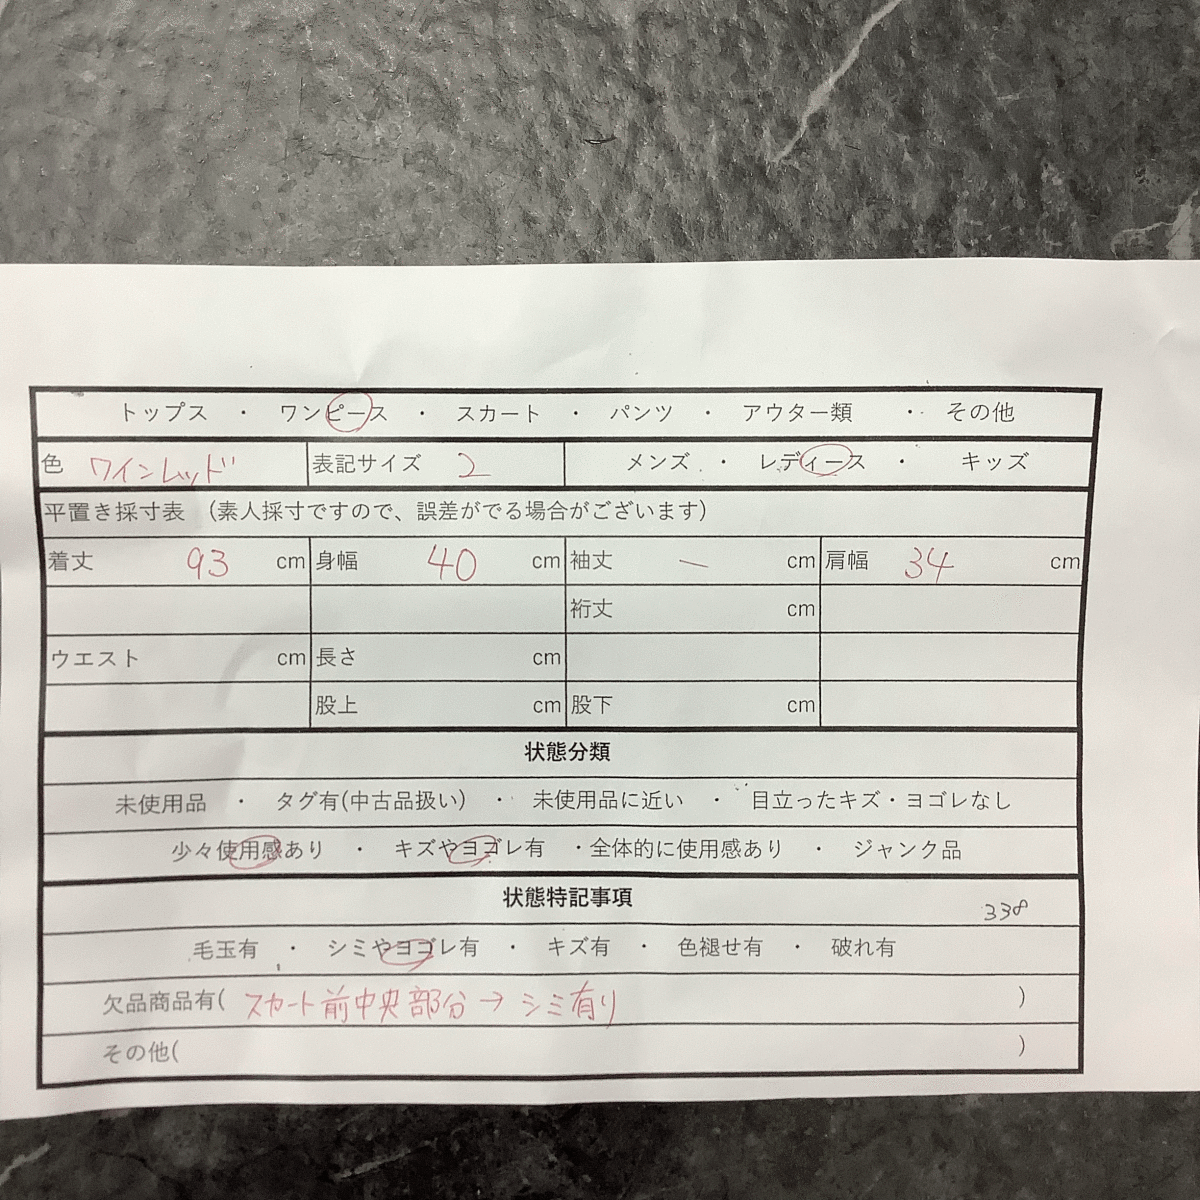 トップス ・ ワンピース ・ スカート ・ パンツ ・ アウター類 ・ その他
色 ワインレッド 表記サイズ 2 メンズ ・ レディース ・ キッズ
平置き採寸表 (素人採寸ですので、誤差がでる場合がございます)
着丈 93 cm 身幅 40 cm 袖丈 ー cm 肩幅 34 cm
裄丈 cm
ウエスト cm 長さ cm
股上 cm 股下 cm
状態分類
未使用品 ・ タグ有(中古品扱い) ・ 未使用品に近い ・ 目立ったキズ・ヨゴレなし
少々使用感あり ・ キズやヨゴレ有 ・全体的に使用感あり ・ ジャンク品
状態特記事項 338
毛玉有 ・ シミやヨゴレ有 ・ キズ有 ・ 色褪せ有 ・ 破れ有
欠品商品有( スカート前中央部分→シミ有り )
その他( )